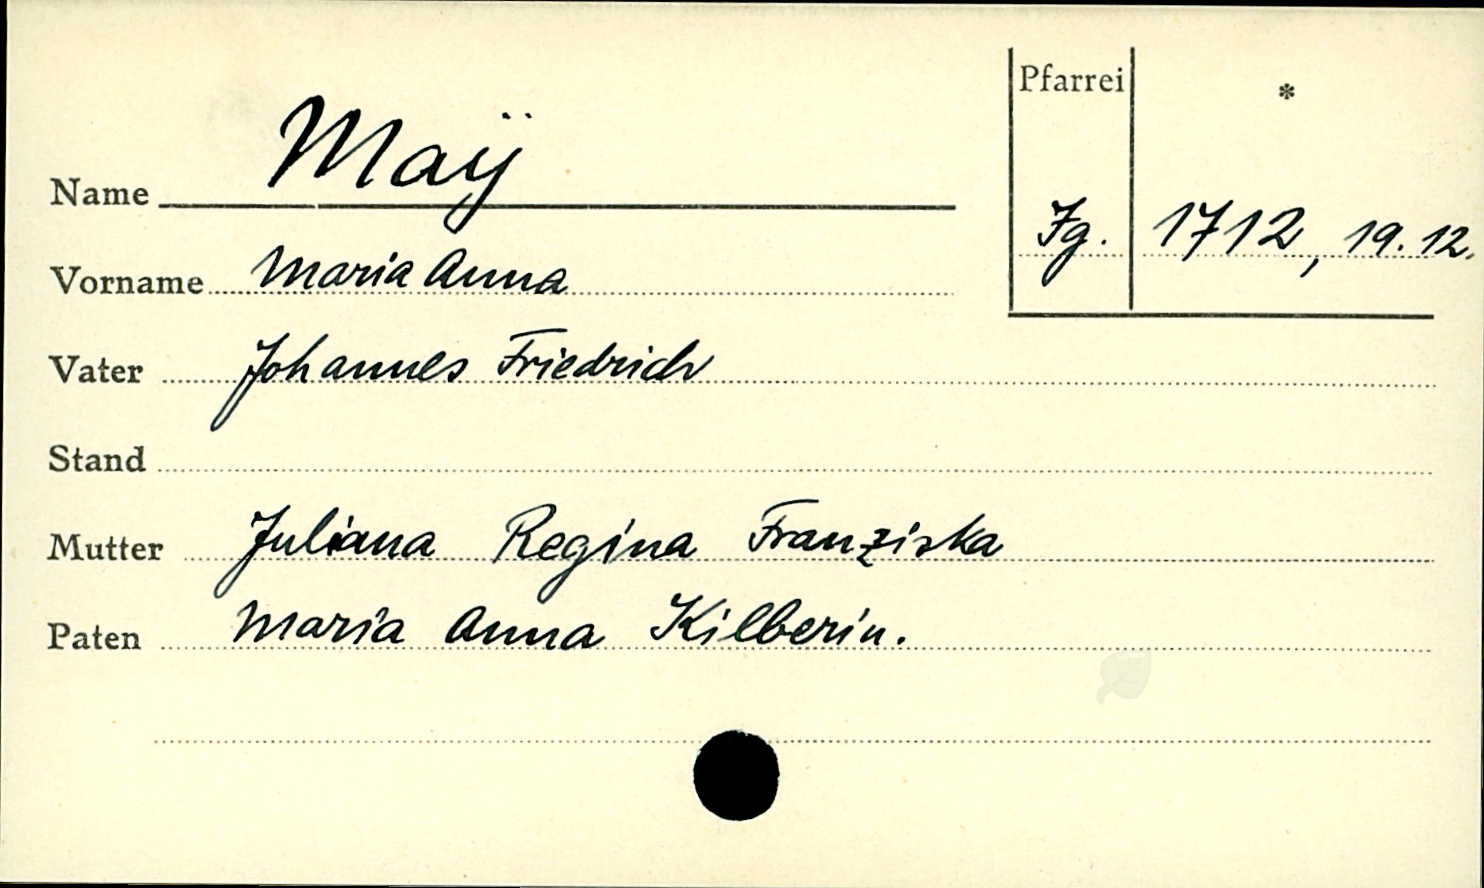 Pfarrei *
Name Maÿ
Jg. 1712, 19. 12.
Vorname Maria Anna
Vater Johannes Friedrich
Stand
Mutter Juliana Regina Franziska
Paten Maria Anna Kilberin.